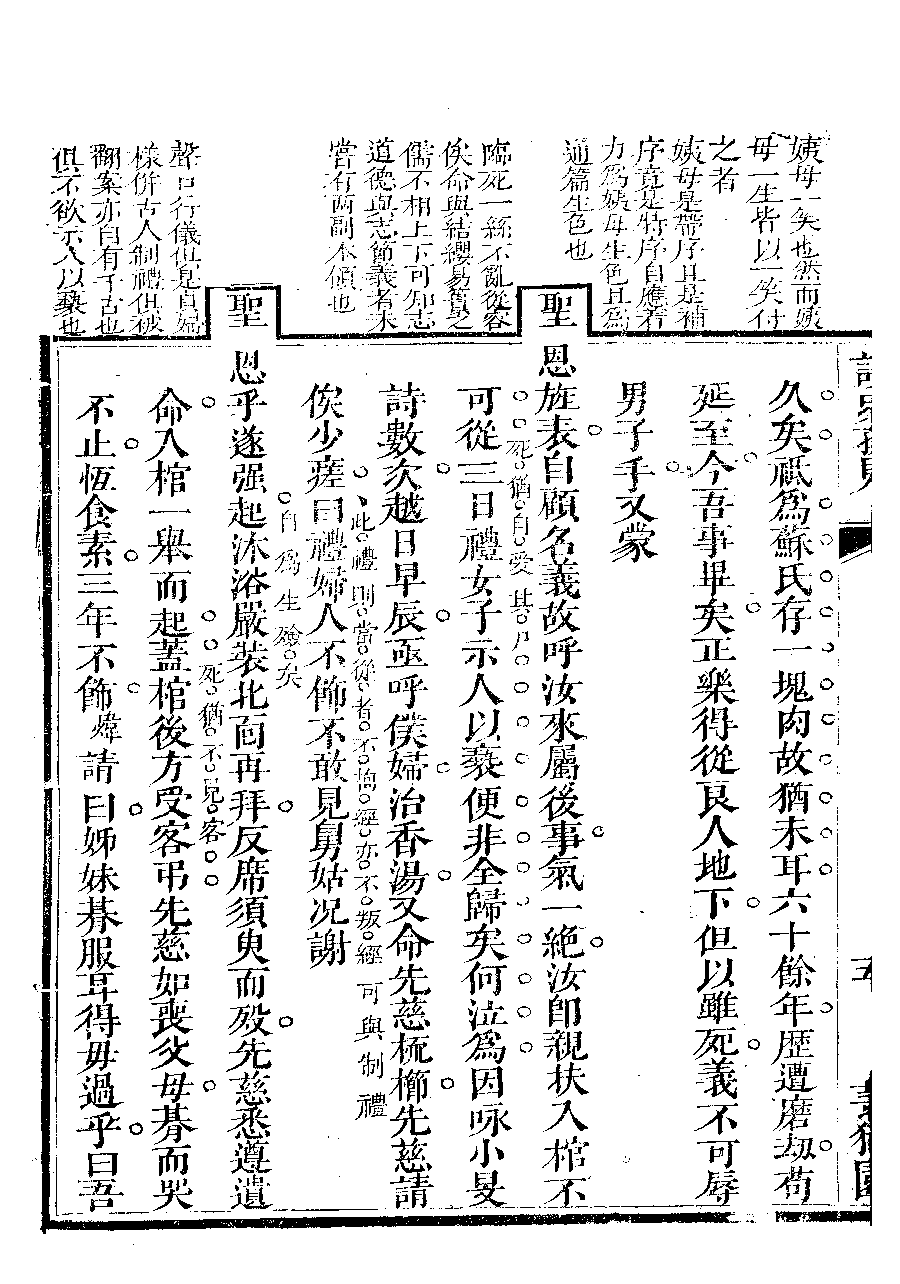 姨母一矣也然而姨
母一生皆以一矣付
之者
姨母是帶序且是補
序竟是特序自應着
力爲姨母生色且爲
通篇生色也
臨死一絲不亂從容
俟命與結纓易簀之
儒不相上下可知志
道德與志節義者未
嘗有兩副本領也
聲口行儀俱是眞婦
樣併古人制禮俱被
翻案亦自有千古也
俱不欲示人以褻也
久矣祗爲蘇氏存一塊肉故猶未耳六十餘年歷遭磨刼苟
延至今吾事畢矣正樂得從良人地下但以雖死義不可辱
男子手又蒙
聖恩旌表自顧名義故呼汝來屬後事氣一絕汝卽親扶入棺不
死猶自愛其尸
可從三日禮女子示人以褻便非全歸矣何泣爲因咏小旻
詩數次越日早辰亟呼僕婦治香湯又命先慈梳櫛先慈請
此禮則當從者不拘經亦不叛經可與制禮
俟少瘥曰禮婦人不飾不敢見舅姑況謝
自爲生殮矣
聖恩乎遂强起沐浴嚴裝北面再拜反席須臾而歿先慈悉遵遺
死猶不見客
命入棺一舉而起蓋棺後方受客弔先慈如喪父母朞而哭
不止恆食素三年不飾煒請曰姊妹朞服耳得毋過乎曰吾
五